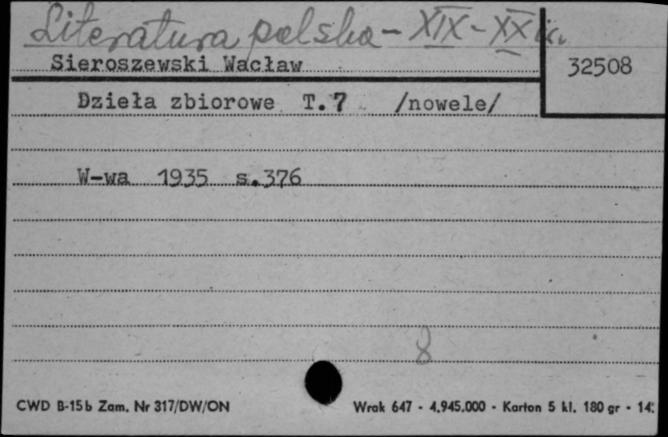 Literatura polska - XIX - XX w.
Sieroszewski Wacław
32508
Dzieła zbiorowe T.7 /nowele/
W-wa 1935 s.376
8
CWD B-15b Zam. Nr 317/DW/ON
Wrak 647 - 4.945.000 - Karton 5 kl. 180 gr - 14.